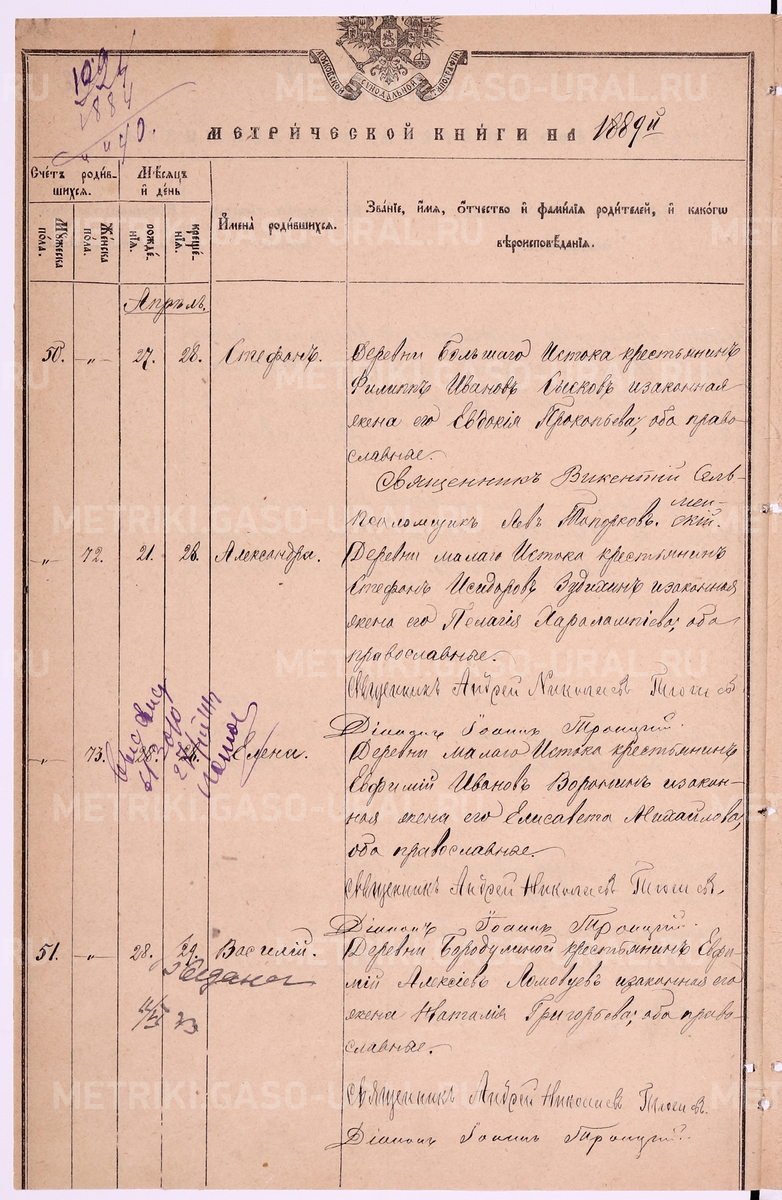 МОСКОВСКОЙ СѴНОДАЛЬНОЙ ТИПОГРАФІИ
МЕТРИЧЕСКОЙ КНИГИ НА 1889й
Счетъ родившихся.
Мѣсяцъ и день
Имена родившихся.
Званіе, имя, отчество и фамилія родителей, и какого
вѣроисповѣданія.
Мужеска пола.
Женска пола.
рожденія.
крещенія.
Апрѣль.
50. -„- 27. 28. Стефанъ. Деревни Большаго Истока крестьянинъ
Филиппъ Ивановъ Сысковъ и законная
жена его Евдокія Прокопьева, оба право-
славные.
Священникъ Викентій Сель-
менскій.
Псаломщикъ Левъ Топорковъ.
-„- 72. 21. 28. Александра. Деревни малаго Истока крестьянинъ
Стефанъ Исидоровъ Зудихинъ и законная
жена его Пелагія Харалампіева, оба
православные.
Священникъ Андрей Николаевъ
Діаконъ Іоаннъ Троицкій.
-„- 73. Елена. Деревни малаго Истока крестьянинъ
Евфимій Ивановъ Воронинъ и закон-
ная жена его Елисавета Михайлова,
оба православные.
Священникъ Андрей Николаевъ
Діаконъ Іоаннъ Троицкій.
51. -„- 28. 29. Василій. Деревни Бородулиной крестьянинъ Евфи-
мій Алексіевъ Ломовцевъ и законная его
жена Наталія Григорьева, оба право-
славные.
Священникъ Андрей Николаевъ
Діаконъ Іоаннъ Троицкій.
METRIKI.GASO-URAL.RU